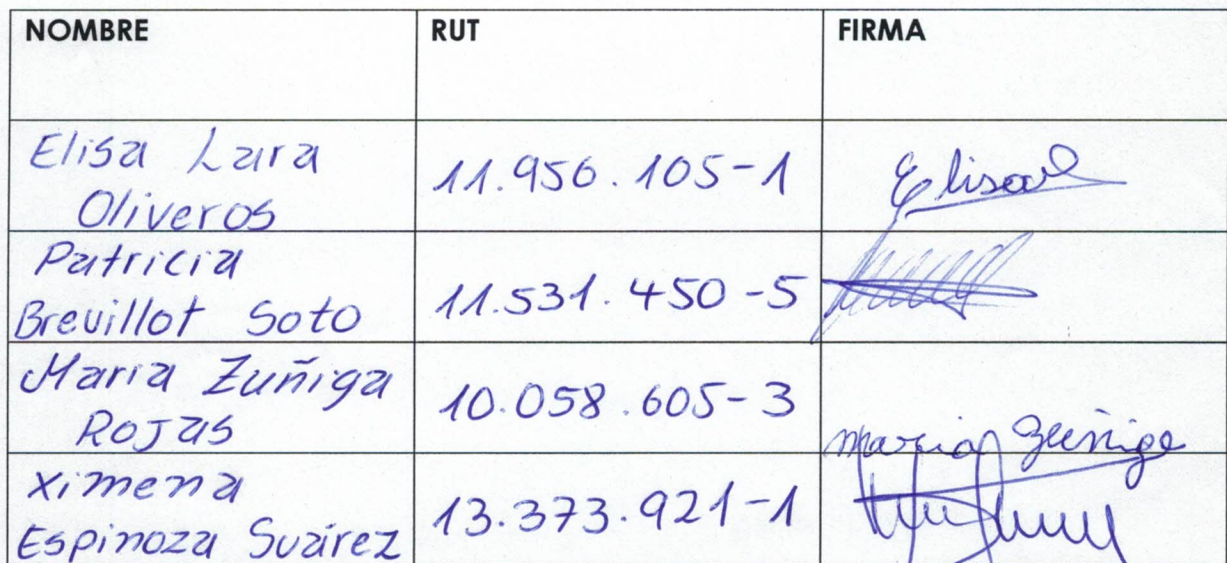 NOMBRE RUT FIRMA
Elisa Lara
Oliveros
11.956.105-1
Elisa
Patricia
Brevillot Soto
11.531.450-5
Maria Zuñiga
Rojas
10.058.605-3
Maria Zuñiga
Ximena
Espinoza Suárez
13.373.921-1